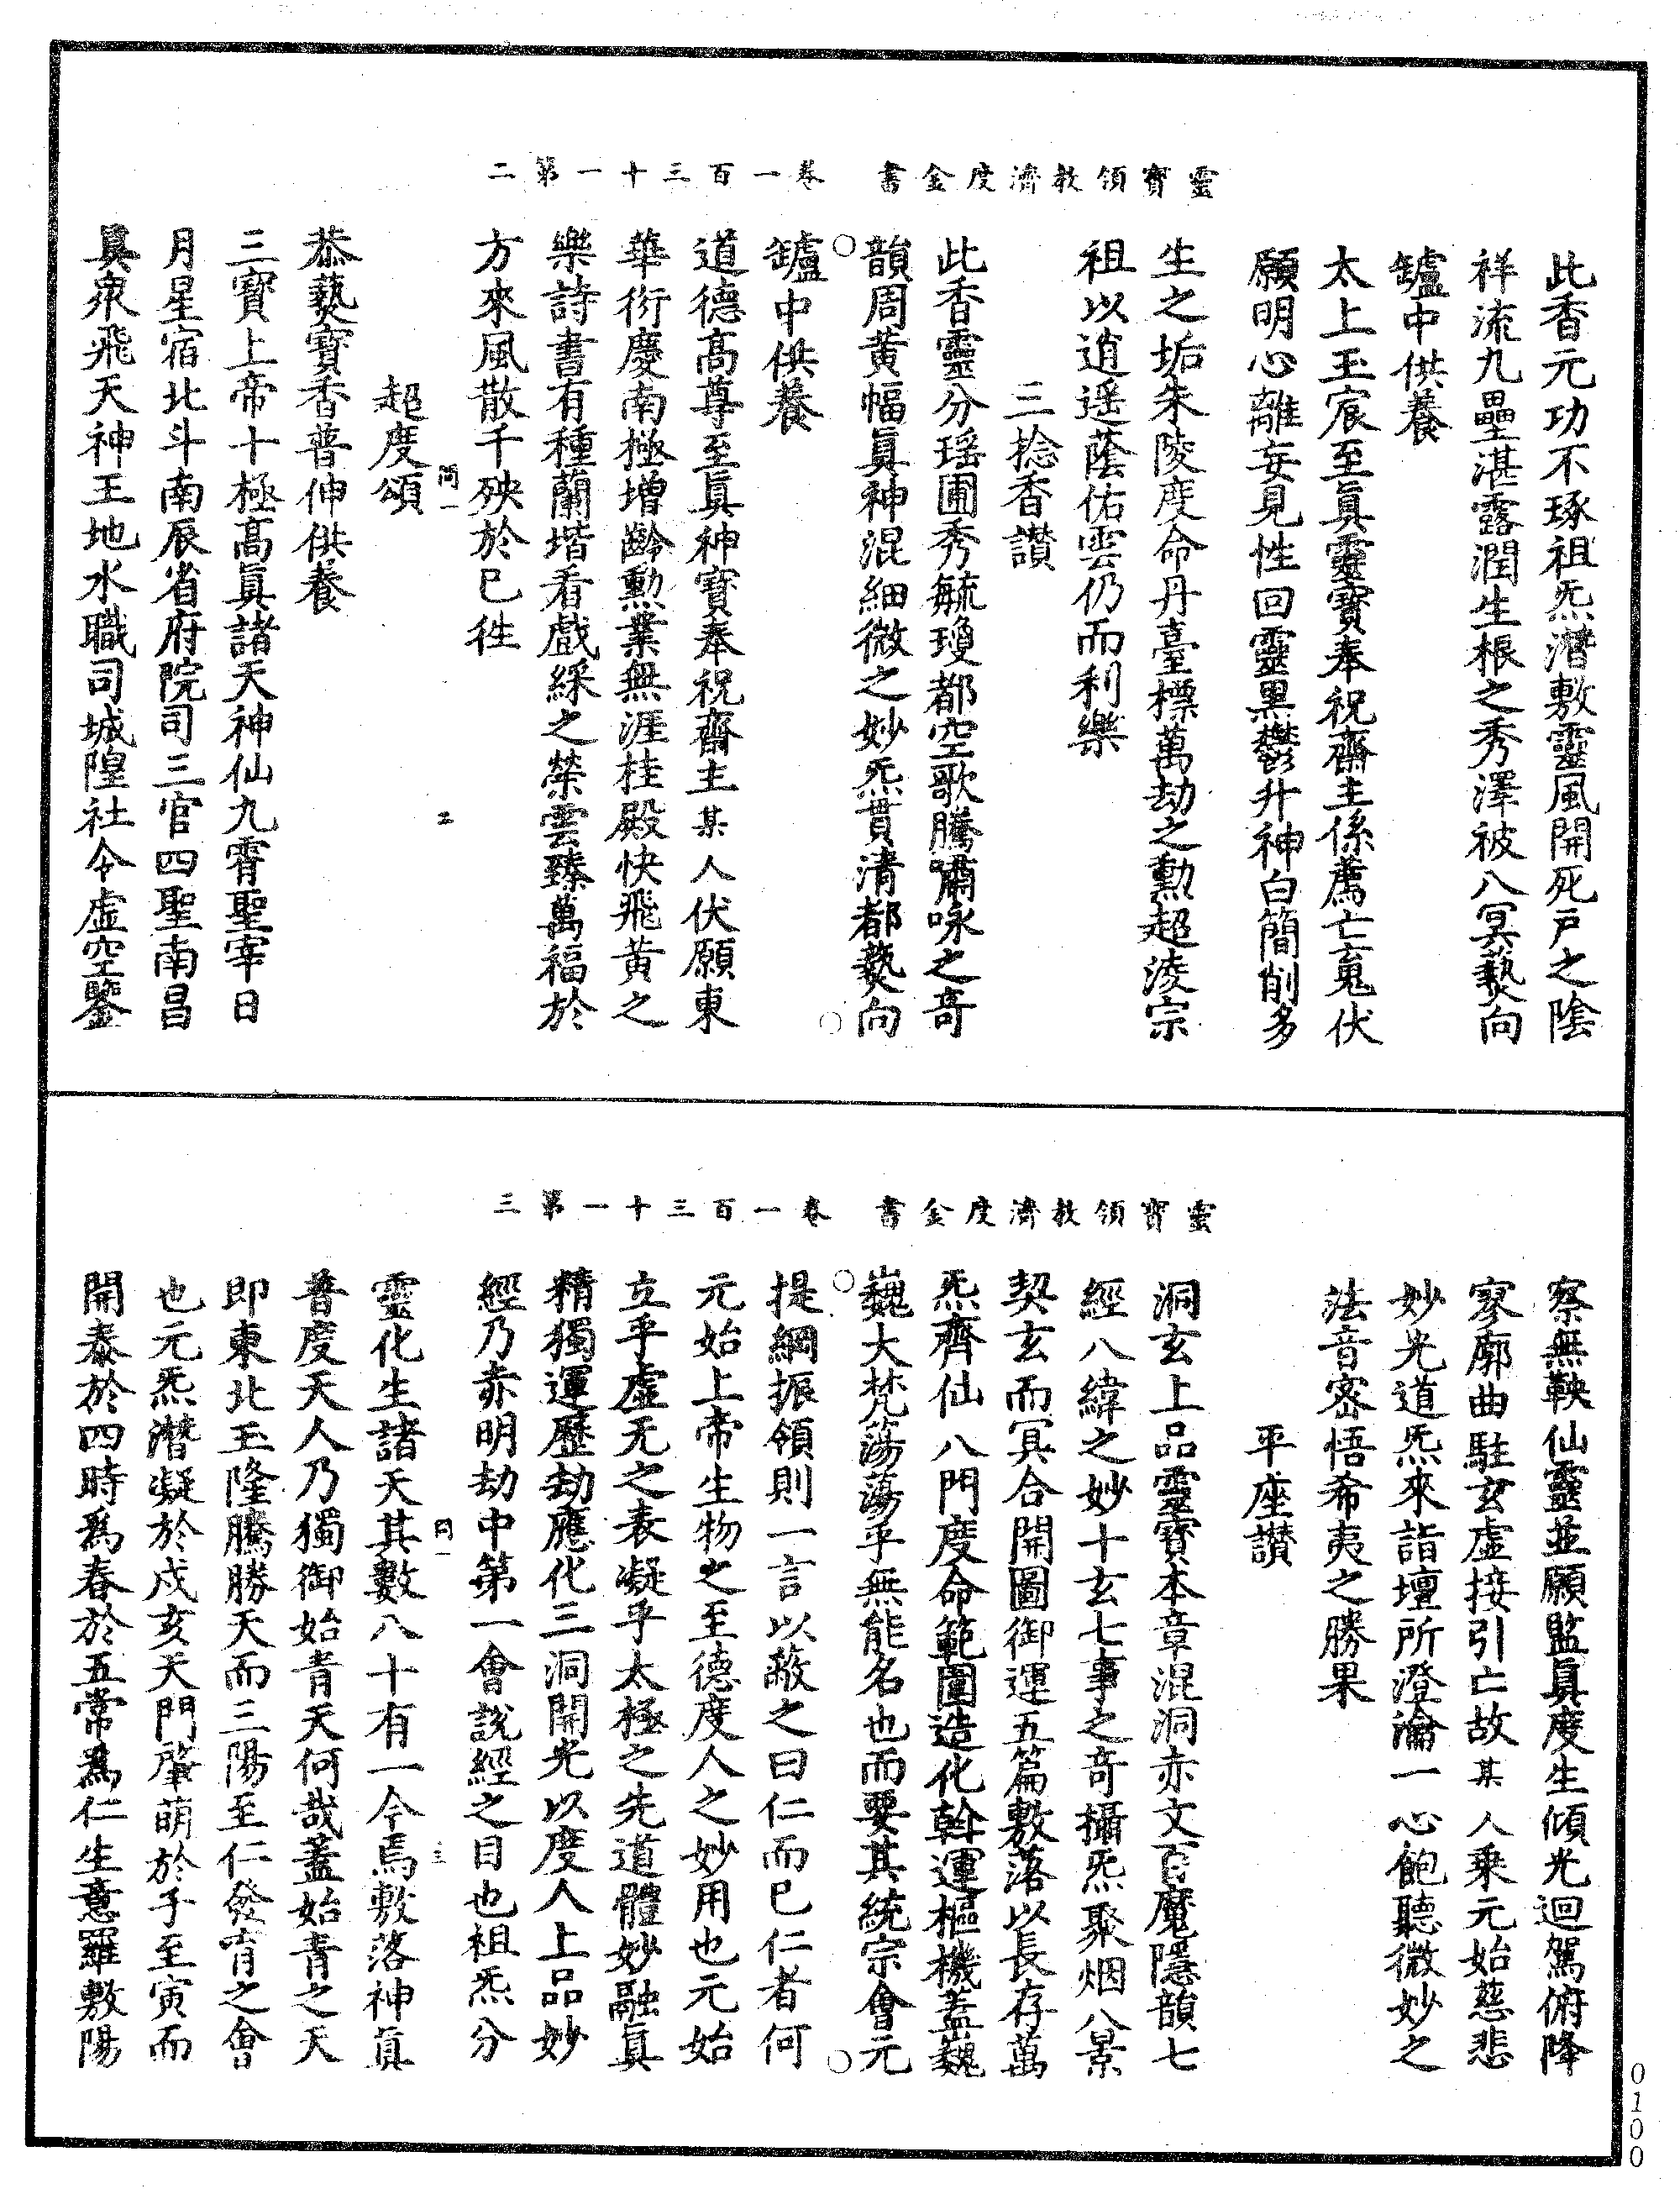 靈寶領教濟度金書 卷一百三十一第二
此香元功不琢祖炁潛敷靈風開死戸之陰
祥流九壘湛露潤生根之秀澤被八冥爇向
罏中供養
太上玉宸至眞靈寶奉祝齋主係薦亡䰟伏
願明心離妄見性回靈黑鬱升神白簡削多
生之垢朱陵度命丹臺標萬劫之勲超淩宗
祖以逍遥蔭佑雲仍而利樂
三捻香讃
此香靈分瑶圃秀毓瓊都空歌騰嘯咏之竒
韻周黄幅眞神混細微之妙炁貫清都爇向
罏中供養
道德髙尊至眞神寶奉祝齋主某人伏願東
華衍慶南極増齡勲業無涯桂殿快飛黄之
樂詩書有種蘭堦看戲綵之榮雲臻萬福於
方來風散千殃於已徃
問一 二
超度頌
恭爇寳香普伸供養
三寳上帝十極髙眞諸天神仙九霄聖宰日
月星宿北斗南辰省府院司三官四聖南昌
眞衆飛天神王地水職司城隍社令虚空鑒
靈寳領教濟度金書 卷一百三十一第三
察無鞅仙靈並願監眞度生傾光迴駕俯降
寥廓曲駐玄虚接引亡故某人乗元始慈悲
妙光道炁來詣壇所澄瀹一心飽聽微妙之
法音密悟希夷之勝果
平座讃
洞玄上品靈寳本章混洞赤文百魔隱韻七
經八緯之妙十玄七事之竒攝炁聚烟八景
契玄而冥合開圖御運五篇敷落以長存萬
炁齊仙八門度命範圍造化斡運樞機蓋巍
巍大梵蕩蕩乎無能名也而要其統宗會元
提綱振領則一言以蔽之曰仁而已仁者何
元始上帝生物之至德度人之妙用也元始
立乎虚无之表凝乎太極之先道體妙融眞
精獨運歴劫應化三洞開光以度人上品妙
經乃赤明劫中第一會説經之目也祖炁分
問一 三
靈化生諸天其數八十有一今焉敷落神眞
普度天人乃獨御始青天何哉蓋始青之天
即東北玉隆騰勝天而三陽至仁發育之會
也元炁潛凝於戍亥天門肇萌於子至寅而
開泰於四時爲春於五常爲仁生意羅敷陽
0100